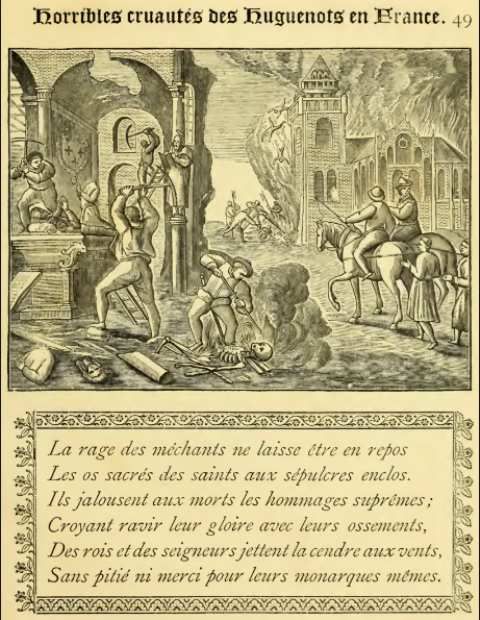 Horribles cruautés des Huguenots en France. 49
La rage des méchants ne laisse être en repos
Les os sacrés des saints aux sépulcres enclos.
Ils jalousent aux morts les hommages suprêmes ;
Croyant ravir leur gloire avec leurs ossements,
Des rois et des seigneurs jettent la cendre aux vents,
Sans pitié ni merci pour leurs monarques mêmes.